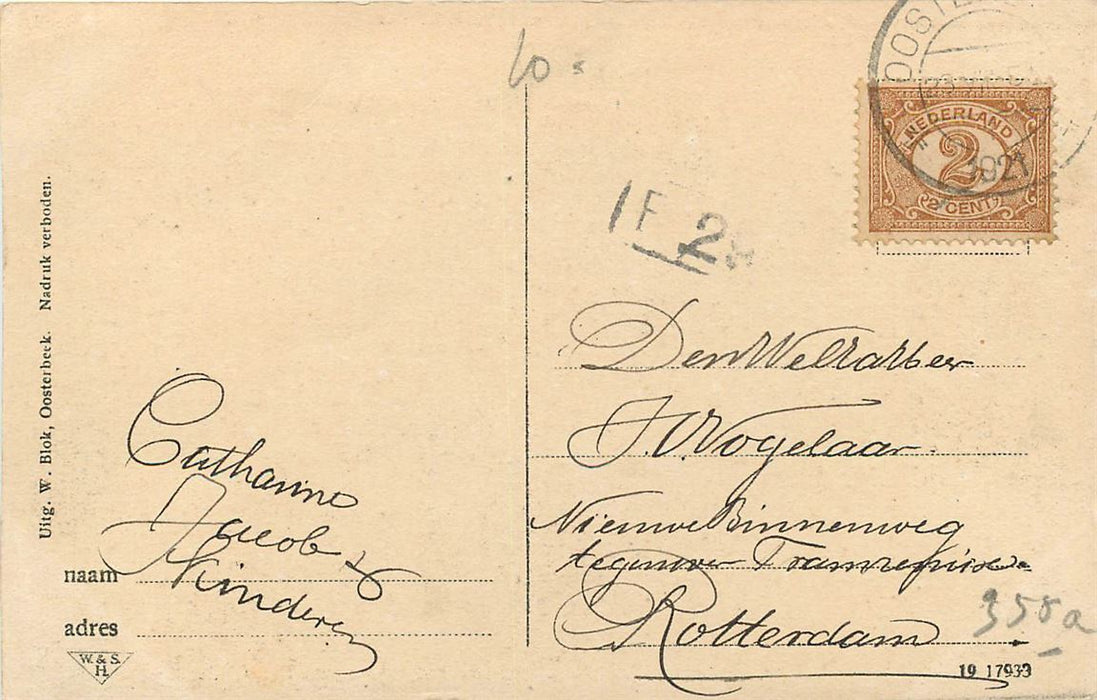 10 =
OOSTE
1921
NEDERLAND
2
2 CENT
1 F 2
Uitg. W. Blok, Oosterbeek. Nadruk verboden.
Catharine
Jacob &
Kinderen
naam
adres
W. & S.
H.
Den WelEd Heer
J. V. Vogelaar
Nieuwe Binnenweg
tegenover Tramremise
Rotterdam
358a
19 17933